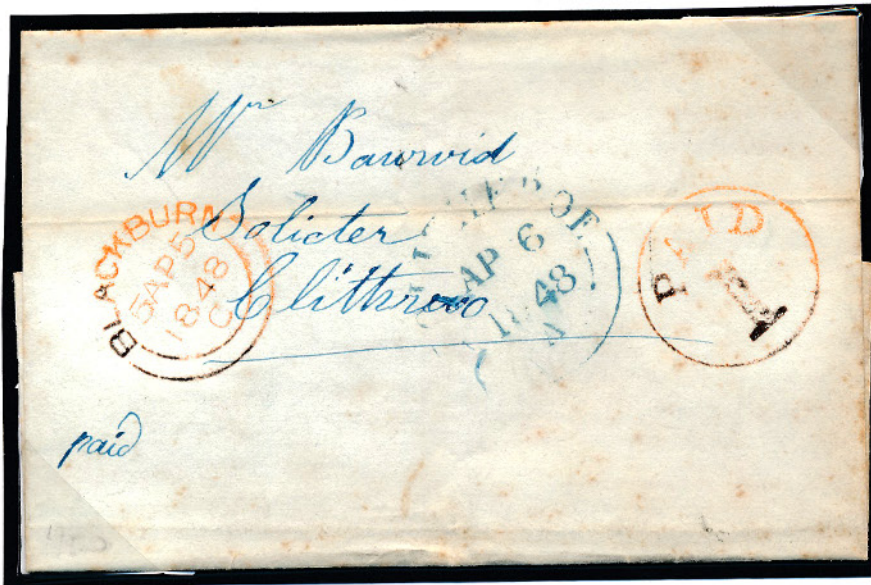 Mr Bawwid
Solicter
Clithroo
paid
BLACKBURN
5AP5
1848
C
CLITHEROE
AP 6
1848
A
PAID
1